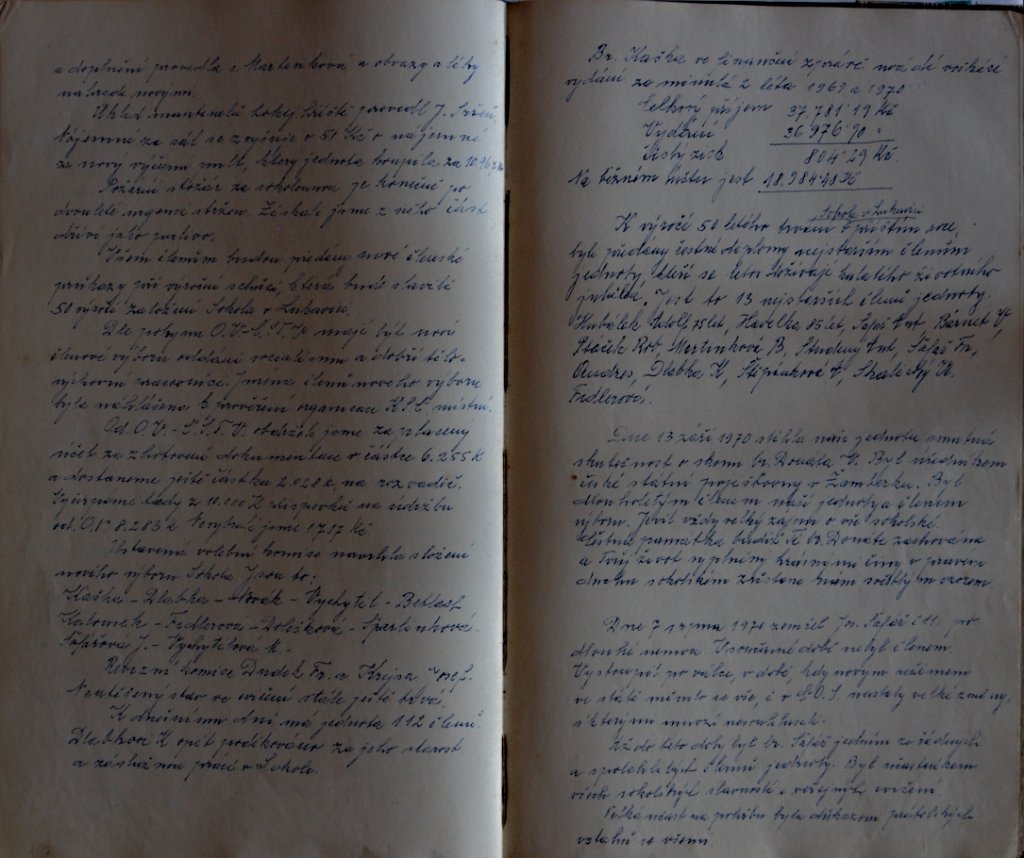 a doplnění provedla s. Martinková a obvazy a léky
nahradí novým
Úklid mantinelů hokej. hřiště provedl J.
Nájemné za sál se zvyšuje o 50 Kčs nájemné
za nový výčepní pult, který jednota koupila za
Požární stožár za sokolovnou je konečně po
dvouleté urgenci stržen. Získali jsme z něho část
dříví jako palivo.
Všem členům budou předány nové členské
průkazy při výroční schůzi, která bude slaviti
50 výročí založení Sokola v Lukavici.
Dle pokynu O.V. Č.S.T.V. mají být noví
členové výboru oddáni socialismu a dobří tělo-
výchovní pracovníci. Jména členů nového výboru
byla nahlášena k prověření organisaci K.S.Č. místní.
Od O.V. - Č.S.T.V. obdrželi jsme za zplacený
účet za zhotovení dokumentace v částce 6.255 K
a dostaneme ještě částku 2.028 k, na rozvaděč.
tedy z 10.000 K příspěvků na údržbu
od O.V. 8.283 k Nevybrali jsme 1717 Kč
Ustavená volební komise navrhla složení
nového výboru Sokola Jsou to:
Kaška - Dlabka - Novák - Vychytil - Betlach
Kalousek - Fiedlerová - Dolečková - Špaslinková -
Šafářová J. - Vychytilová K.
Revizní komise Dudek Fr. a Krejsa Josef.
Neutěšený stav ve cvičení stále ještě trvá.
K dnešnímu dni má jednota 112 členů.
Dlabkovi K opět poděkováno za jeho starost
a záslužnou práci v Sokole.
Br. Kaška ve finanční zprávě uvádí veškeré
vydání za minulá 2 léta 1969 a 1970
Celkový příjem 37.781·19 Kč
Vydání 36.976·90 "
Čistý zisk 804·29 Kč
Na běžném kontě jest 18.984·48 K
Sokola v Lukavici
K výročí 50 letého trvání v příštím roce,
byly předány čestné diplomy nejstarším členům
jednoty kteří se letos dožívají kulatého životního
jubilea. Jest to 13 nejstarších členů jednoty.
Kubálek Adolf, 75 let, Havelka 85 let, Ant, Bárnet V,
Ptaček Rob, Martinková B, Studený Ant, Šafář Fr,
Andres, Dlabka K, Štěpánková A, Skalický K.
Fiedlerová.
Dne 13 září 1970 stihla naši jednotu smutná
skutečnost o skonu br. Donáta G. Byl úředníkem
české státní pojišťovny v Žamberku. Byl
dlouholetým členem naší jednoty a členem
výboru. Jevil vždy velký zájem o vše sokolské.
Čestná památka budiž Ti br. Donáte zachována
a Tvůj život vyplněný krásnými činy v pravém
duchu sokolském zůstane nám světlým vzorem.
Dne 7 srpna 1970 zemřel Jos. Šafář č 11. po
dlouhé nemoci. V současné době nebyl členem.
Vystoupil po válce, v době, kdy novým režimem
ve státě měnilo se vše, i v Č.O.S. nastaly velké změny,
s kterými mnozí nesouhlasili.
Až do této doby byl br. Šafář jedním ze řádných
a spolehlivých členů jednoty. Byl účastníkem
všech sokolských slavností a veřejných cvičení.
Velká účast na pohřbu byla důkazem přátelských
vztahů se všemi